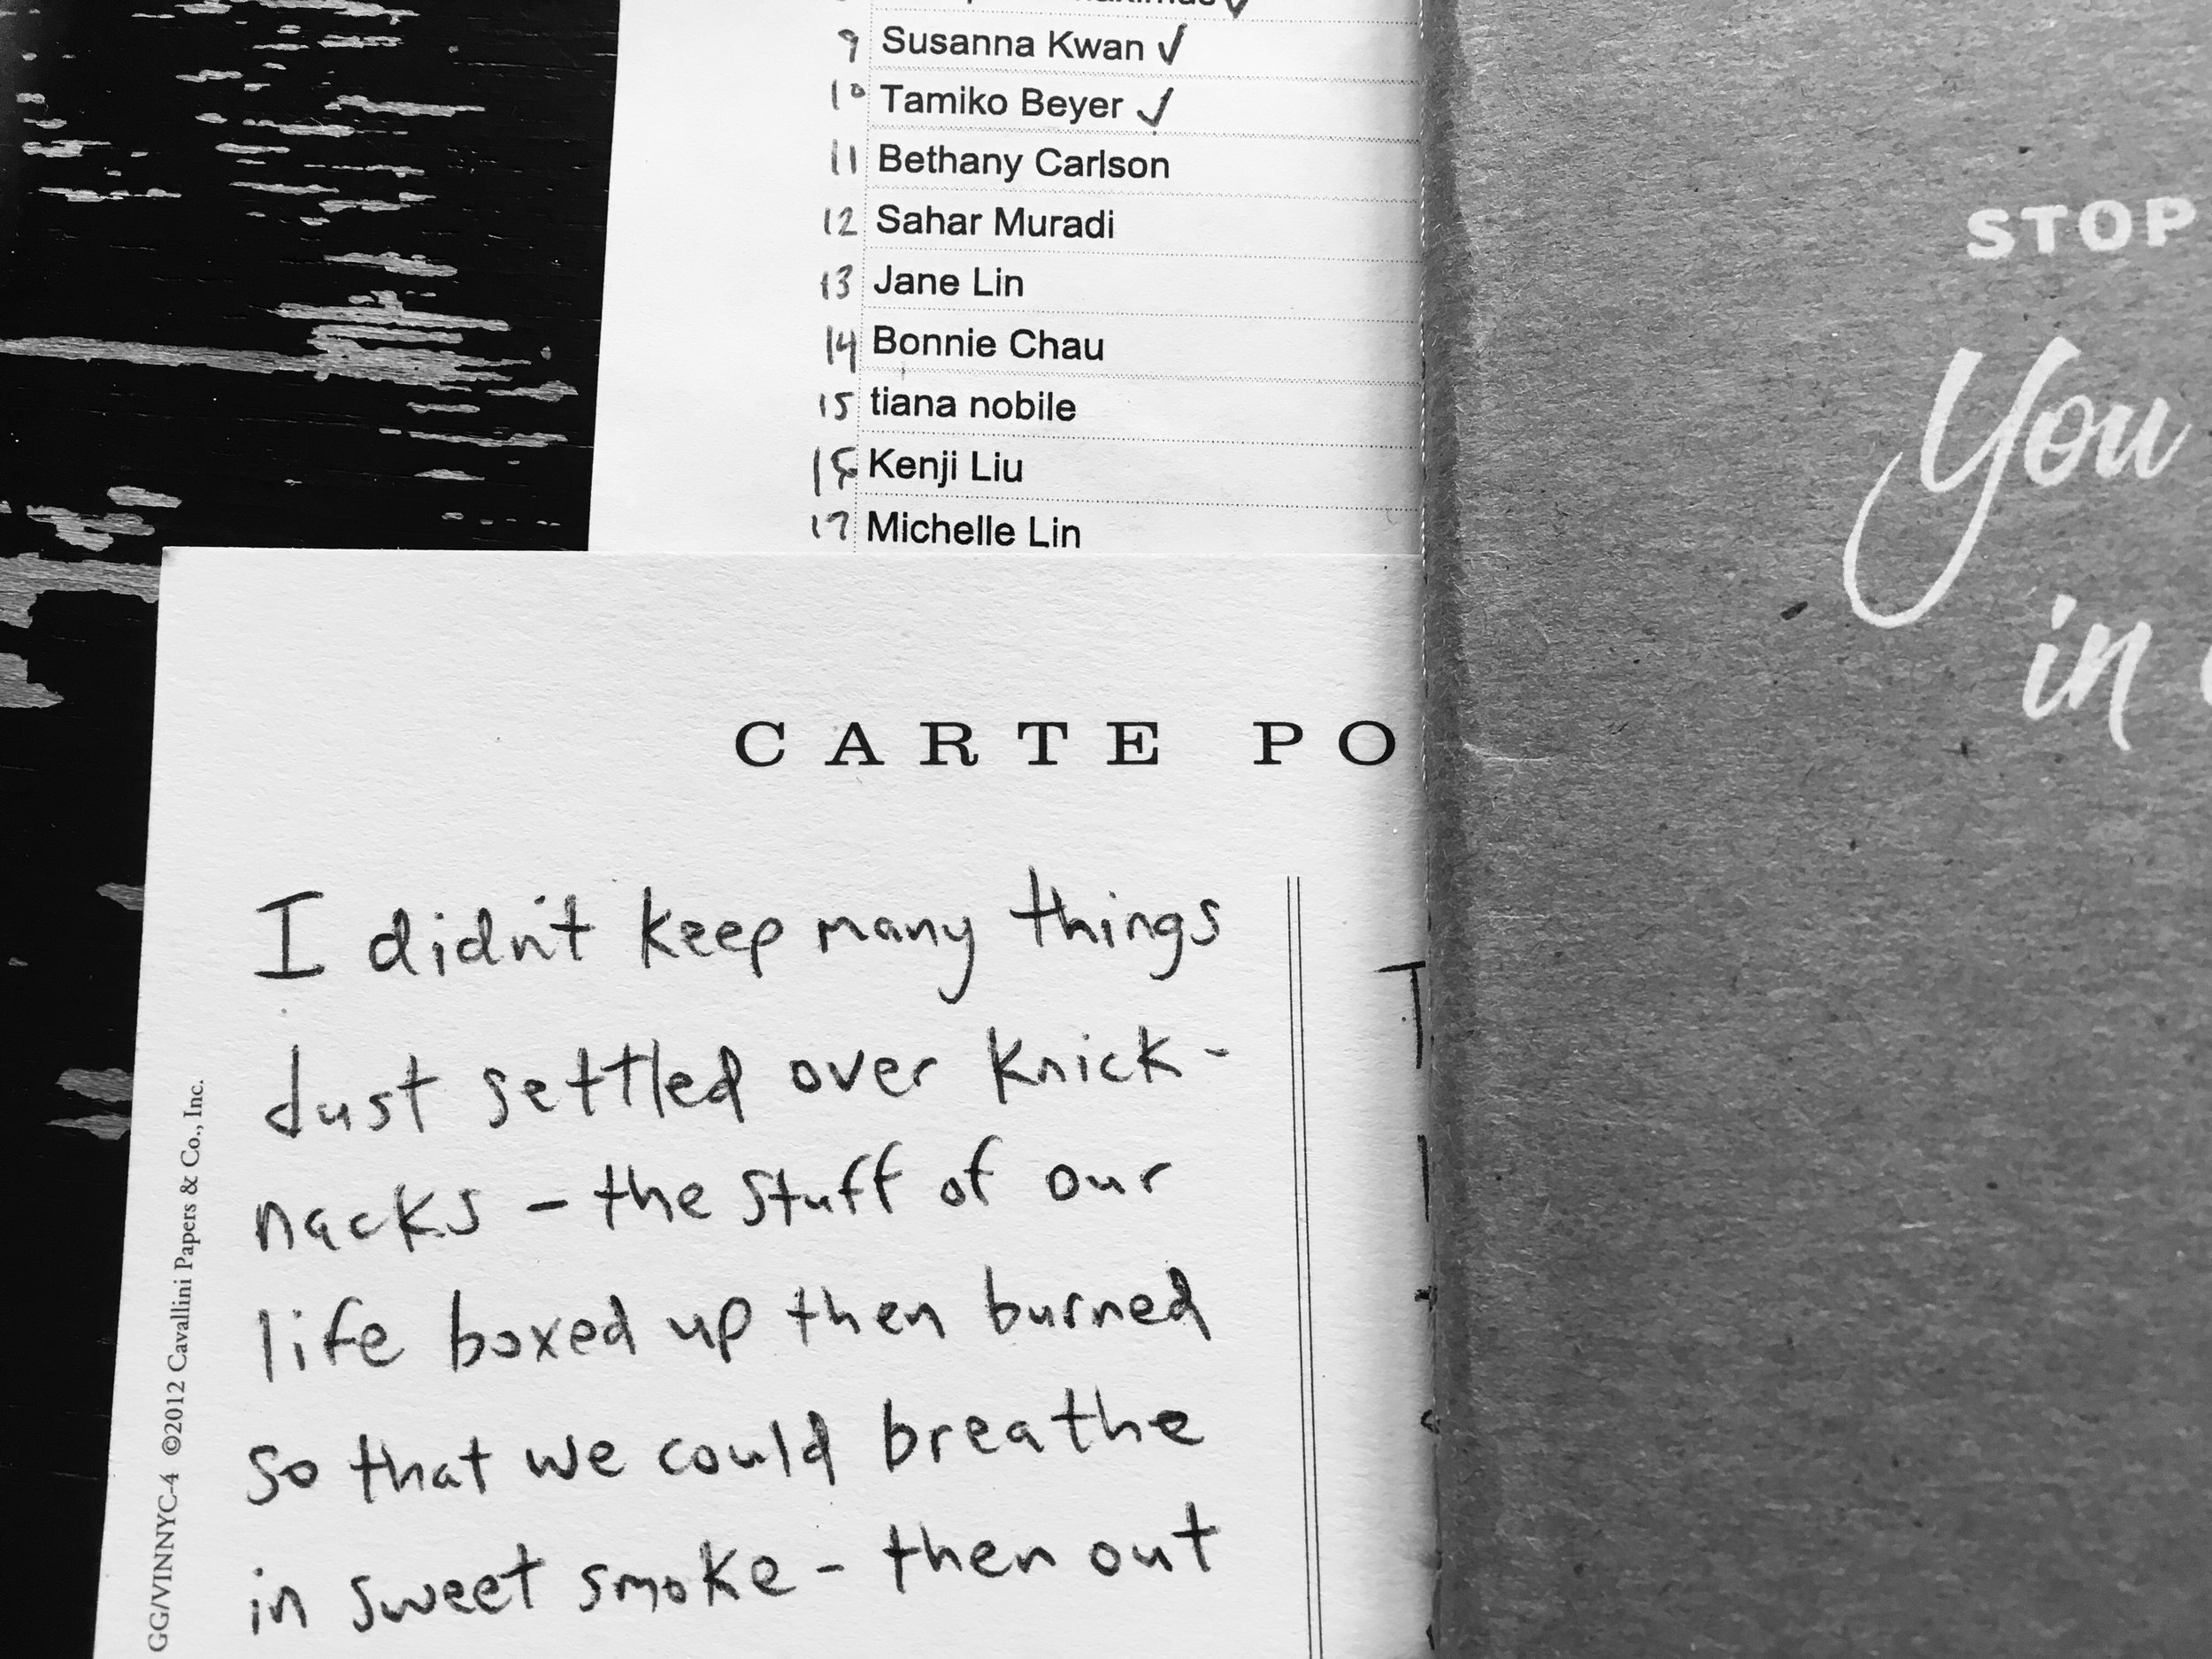 9 Susanna Kwan ✓
10 Tamiko Beyer ✓
11 Bethany Carlson
12 Sahar Muradi
13 Jane Lin
14 Bonnie Chau
15 tiana nobile
Kenji Liu
17 Michelle Lin
CARTE PO
I didn't keep many things
dust settled over knick-
nacks - the stuff of our
life boxed up then burned
so that we could breathe
in sweet smoke - then out
GG/VINNYC-4 ©2012 Cavallini Papers & Co., Inc.
STOP
You
in